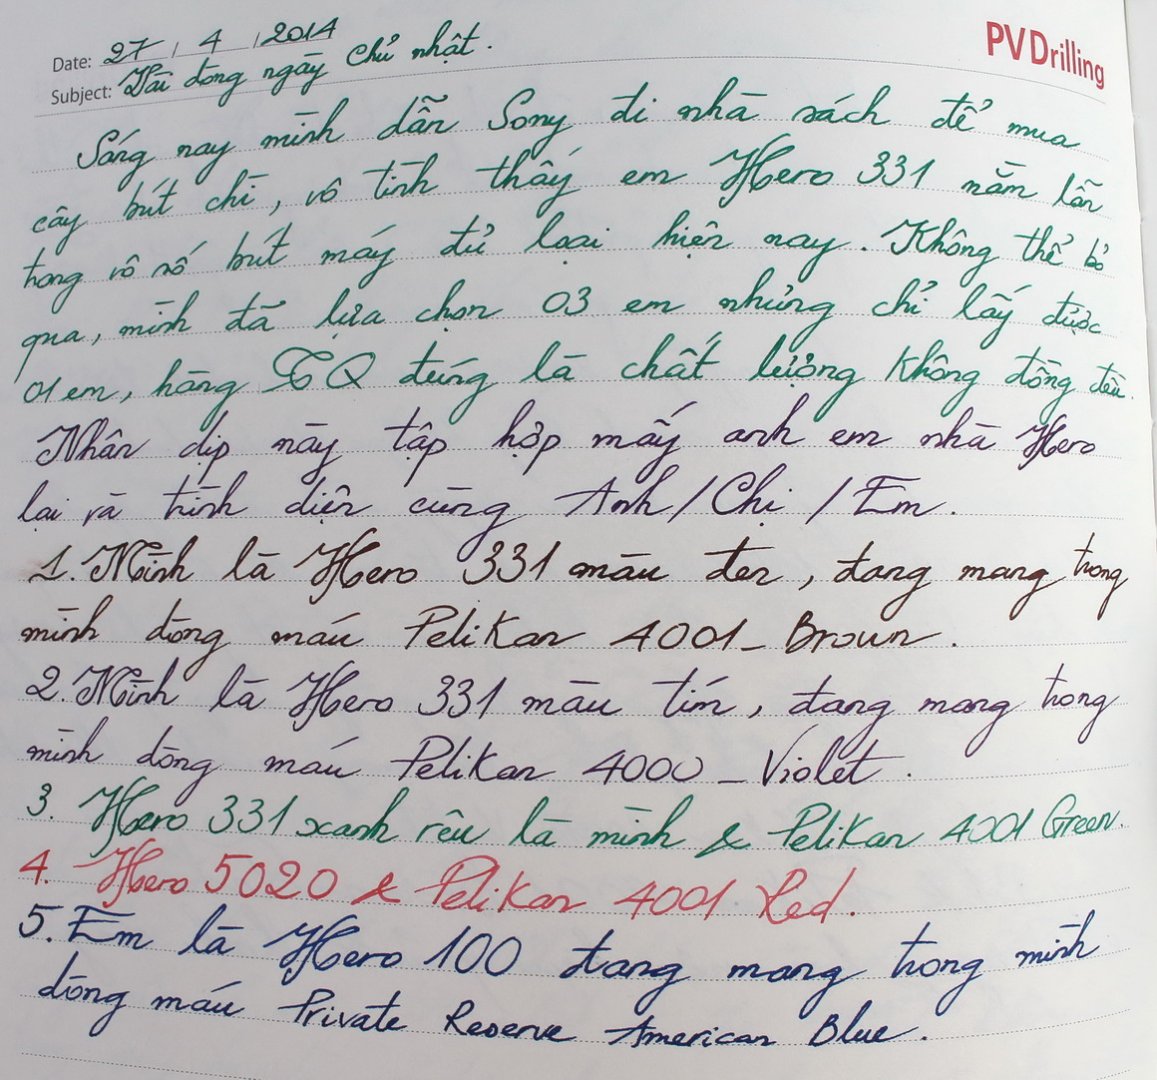 PVDrilling
Date: 27 / 4 / 2014
Subject: Vài dòng ngày chủ nhật.
Sáng nay mình dẫn Sony đi nhà sách để mua
cây bút chì, vô tình thấy em Hero 331 nằm lẫn
trong vô số bút máy đủ loại hiện nay. Không thể bỏ
qua, mình đã lựa chọn 03 em nhưng chỉ lấy được
01 em, hàng TQ đúng là chất lượng không đồng đều.
Nhân dịp này tập hợp mấy anh em nhà Hero
lại và trình diện cùng Anh/Chị/Em.
1. Mình là Hero 331 màu đen, đang mang trong
mình dòng máu Pelikan 4001_Brown.
2. Mình là Hero 331 màu tím, đang mang trong
mình dòng máu Pelikan 4000_Violet.
3. Hero 331 xanh rêu là mình & Pelikan 4001 Green.
4. Hero 5020 & Pelikan 4001 Red.
5. Em là Hero 100 đang mang trong mình
dòng máu Private Reserve American Blue.